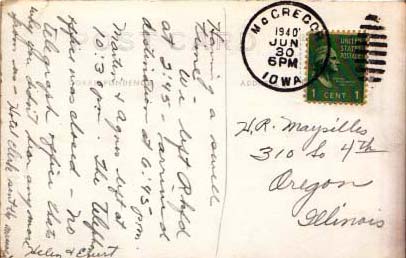 POST CARD
CORRESPONDENCE
Having a swell
time!
We left Rkfd
at 3:45 - arrived
destination at 6:45 p.m.
Martin & Agnes left at
10:30 pm. The Telephone
office was closed - No
telegraph office that's
why you didn't hear any more
from us - Hotel Clerk sent the message
Helen & Evert
McGREGOR
1940
JUN
30
6PM
IOWA
UNITED
STATES
POSTAGE
1 CENT 1
H.R. Maysilles
310 So 4th
Oregon
Illinois